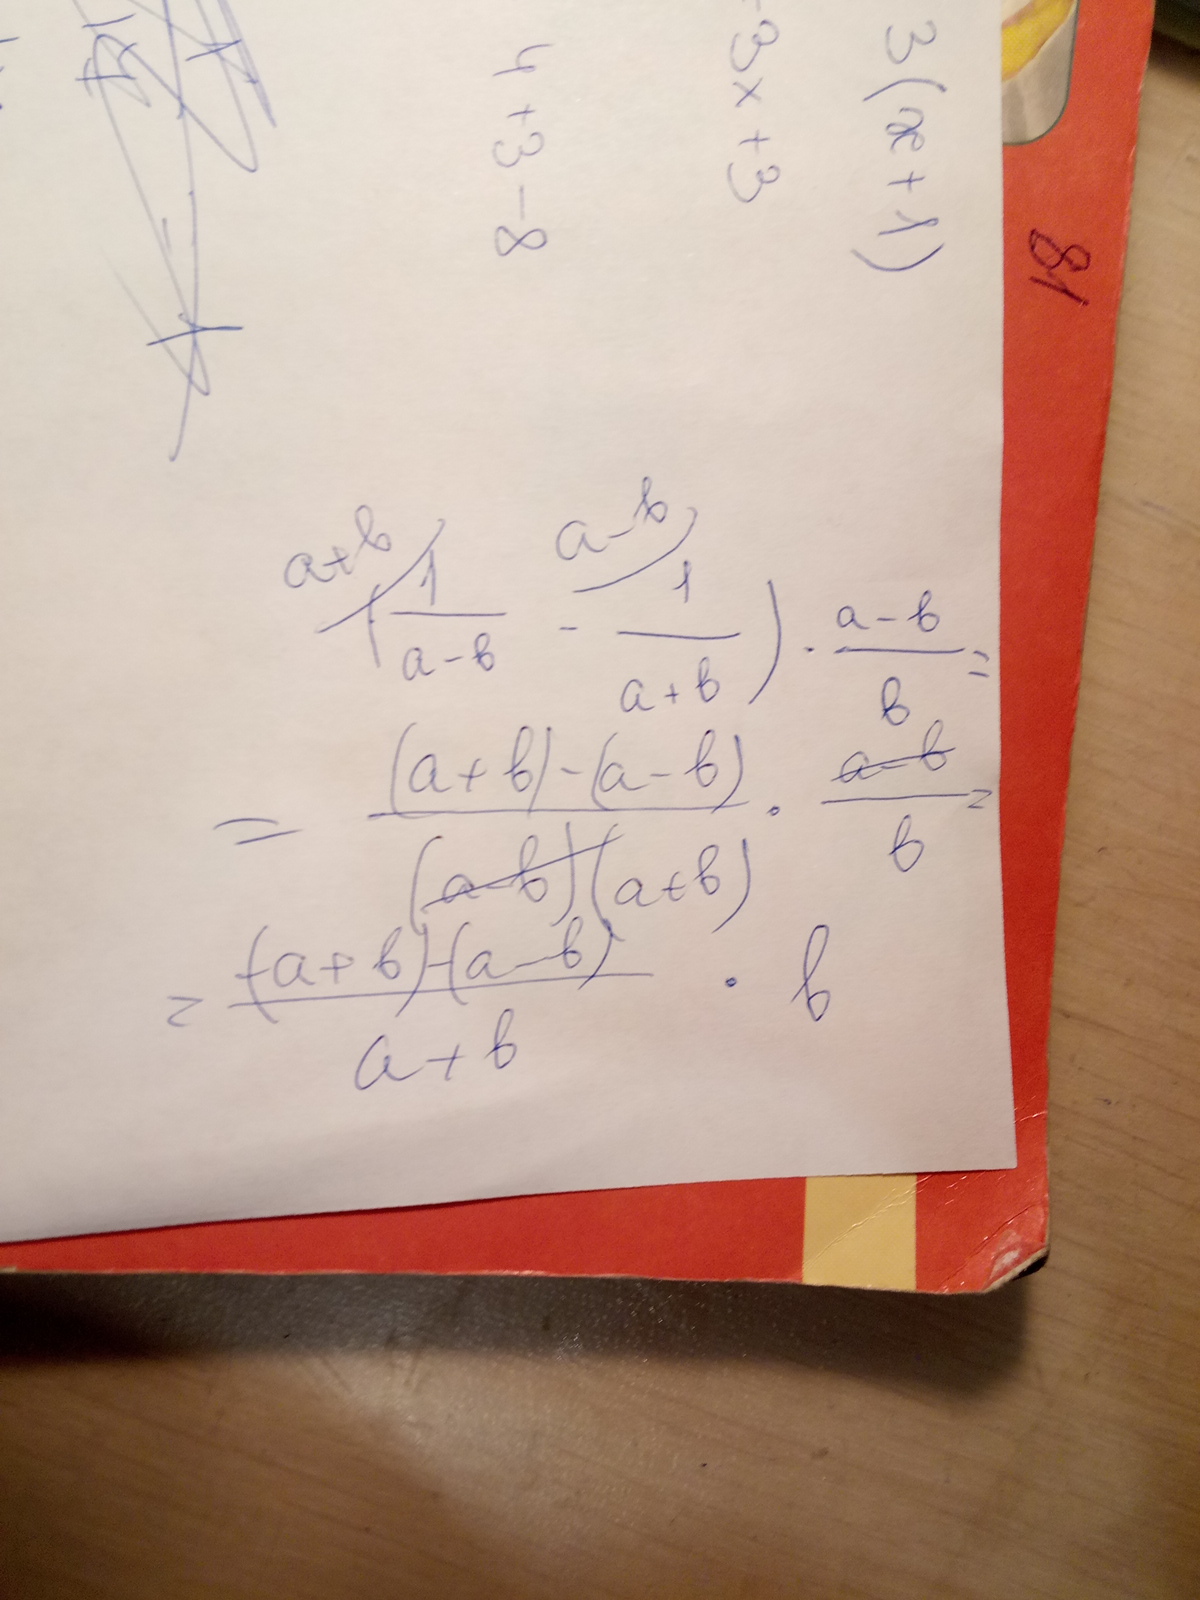 3(x+1)
-3x+3
4+3-8
81
a+b a-b
(1/(a-b) - 1/(a+b)) · (a-b)/b =
= ((a+b)-(a-b))/((a-b)(a+b)) · (a-b)/b =
= ((a+b)-(a-b))/(a+b) · b